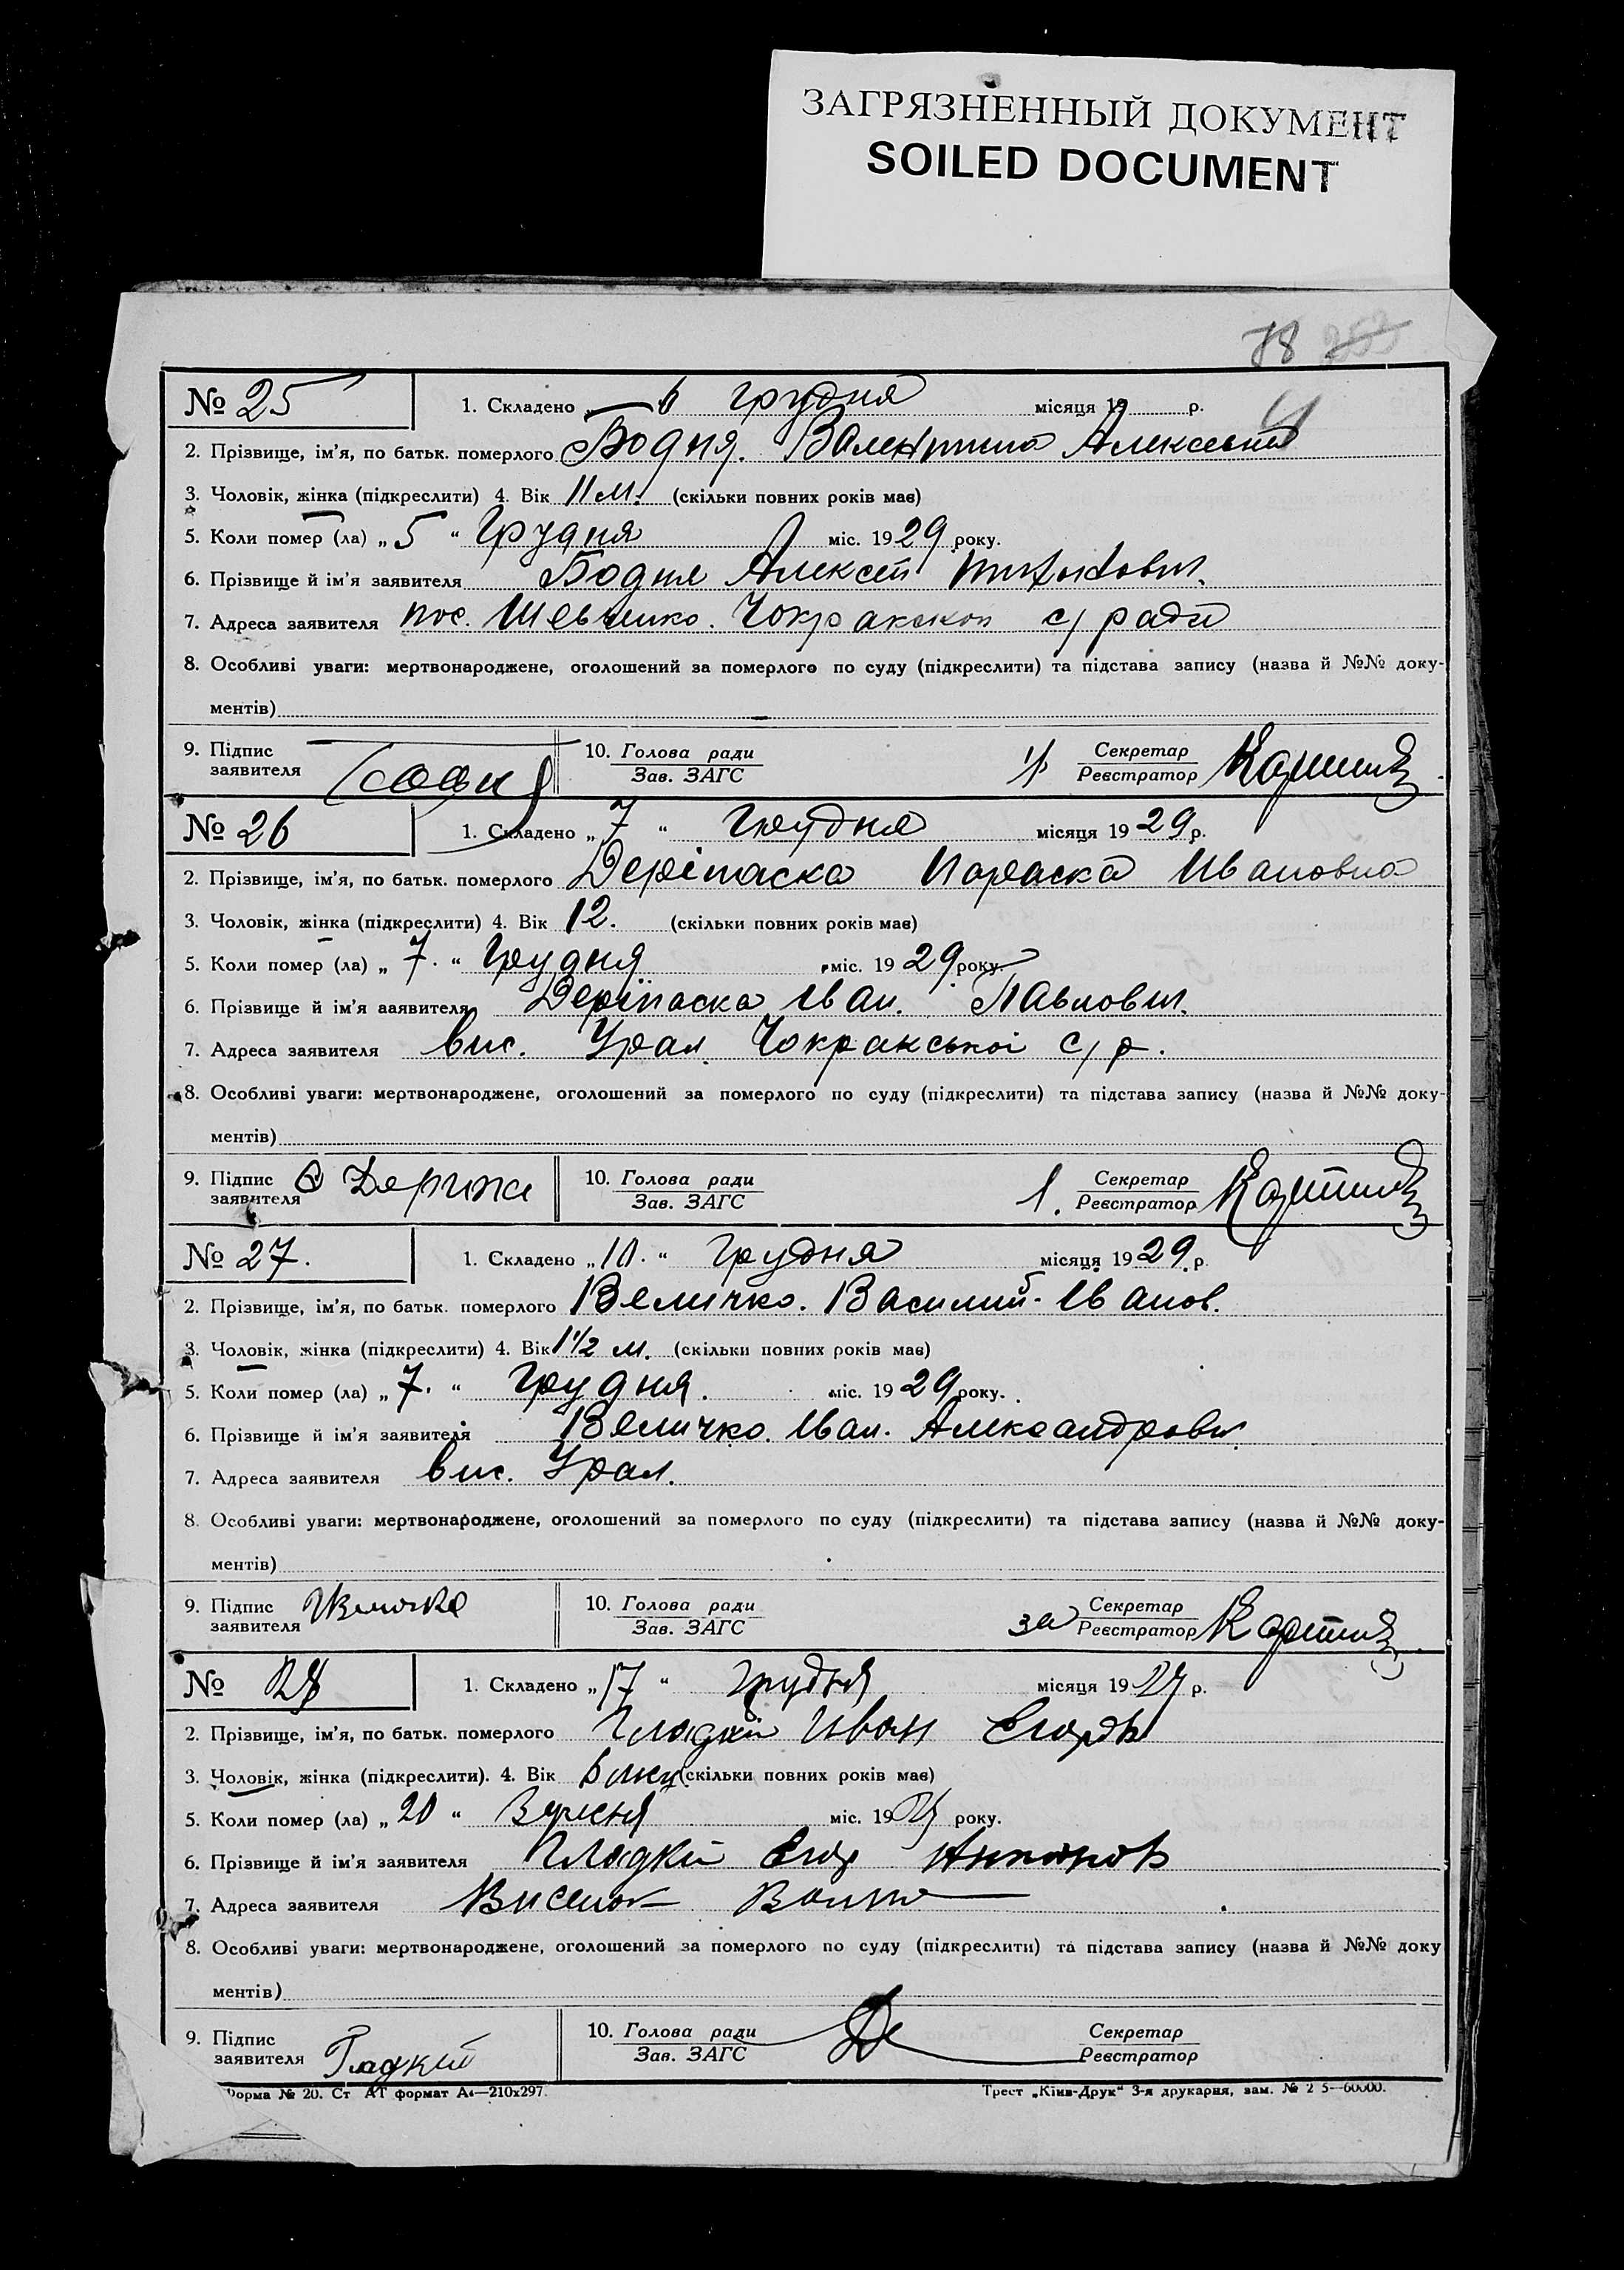 ЗАГРЯЗНЕННЫЙ ДОКУМЕНТ
SOILED DOCUMENT
78 253
№ 25 1. Складено „ 6 грудня місяця 19 р.
2. Прізвище, ім'я, по батьк. померлого Бодня. Валентина Алексеевна
3. Чоловік, жінка (підкреслити) 4. Вік 11 м. (скільки повних років має)
5. Коли помер (ла) „ 5 “ Грудня міс. 1929 року.
6. Прізвище й ім'я заявителя Бодня Алексей
7. Адреса заявителя пос. Шевченко. Чокракской с/ради
8. Особливі уваги: мертвонароджене, оголошений за померлого по суду (підкреслити) та підстава запису (назва й №№ доку-
ментів)
9. Підпис заявителя 10. Голова ради Зав. ЗАГС Секретар Реєстратор
№ 26 1. Складено „ 7 “ Грудня місяця 19 29 р.
2. Прізвище, ім'я, по батьк. померлого Деріпаска Параска Ивановна
3. Чоловік, жінка (підкреслити) 4. Вік 12. (скільки повних років має)
5. Коли помер (ла) „ 7. “ Грудня міс. 19 29 року.
6. Прізвище й ім'я заявителя Деріпаска Иван. Павлович.
7. Адреса заявителя вис. Урал. Чокракської с/р.
8. Особливі уваги: мертвонароджене, оголошений за померлого по суду (підкреслити) та підстава запису (назва й №№ доку-
ментів)
9. Підпис заявителя 10. Голова ради Зав. ЗАГС Секретар Реєстратор
№ 27. 1. Складено „ 10. “ Грудня місяця 19 29 р.
2. Прізвище, ім'я, по батьк. померлого Величко. Василий Иванов.
3. Чоловік, жінка (підкреслити) 4. Вік 1 1/2 м. (скільки повних років має)
5. Коли помер (ла) „ 7. “ Грудня. міс. 19 29 року.
6. Прізвище й ім'я заявителя Величко. Иван. Александрович
7. Адреса заявителя вис. Урал.
8. Особливі уваги: мертвонароджене, оголошений за померлого по суду (підкреслити) та підстава запису (назва й №№ доку-
ментів)
9. Підпис заявителя Величко 10. Голова ради Зав. ЗАГС за Секретар Реєстратор
№ 28 1. Складено „ 17 “ грудня місяця 19 29 р.
2. Прізвище, ім'я, по батьк. померлого Гладкий Иван Егоров
3. Чоловік, жінка (підкреслити). 4. Вік 6 (скільки повних років має)
5. Коли помер (ла) „ 20 “ Вересня міс. 19 29 року.
6. Прізвище й ім'я заявителя Гладкий Егор Антонов
7. Адреса заявителя Виселок
8. Особливі уваги: мертвонароджене, оголошений за померлого по суду (підкреслити) та підстава запису (назва й №№ доку
ментів)
9. Підпис заявителя Гладкий 10. Голова ради Зав. ЗАГС Секретар Реєстратор
Форма № 20. Ст АТ формат А4—210х297. Трест „Київ-Друк“ 3-я друкарня, зам. № 2 5—60000.